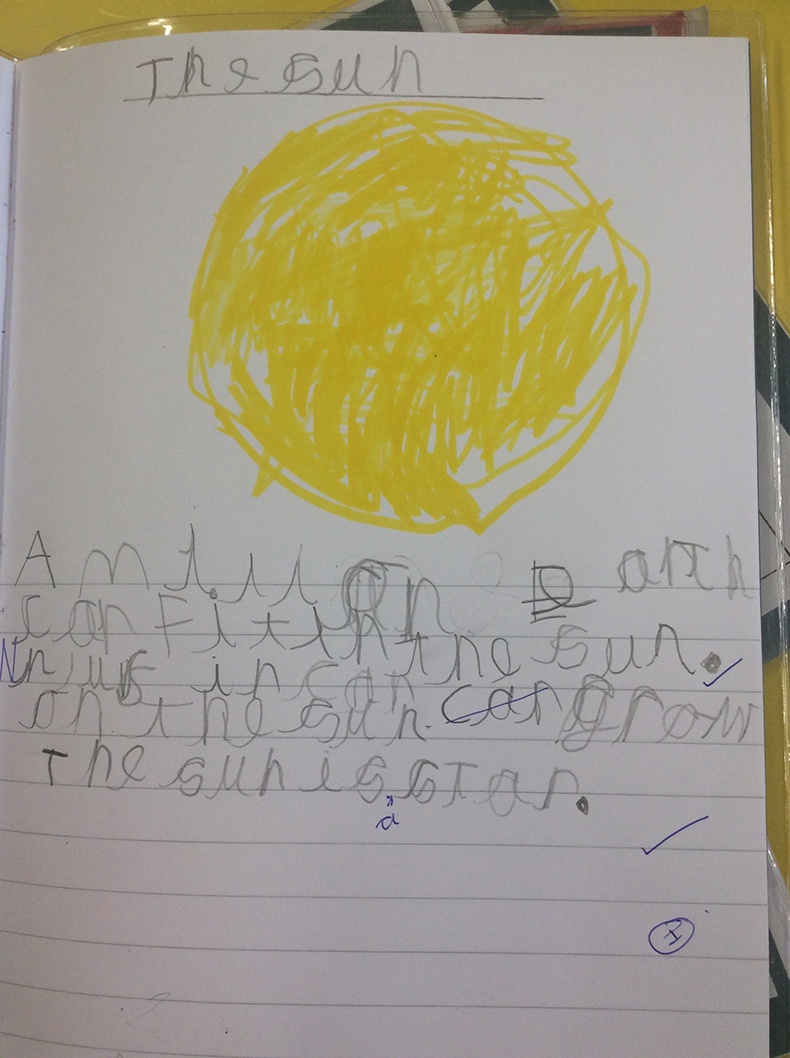 The sun
A millon Earth
can Fit in the sun.
N
in can
on the sun. can grow
The sun is star.
a
I